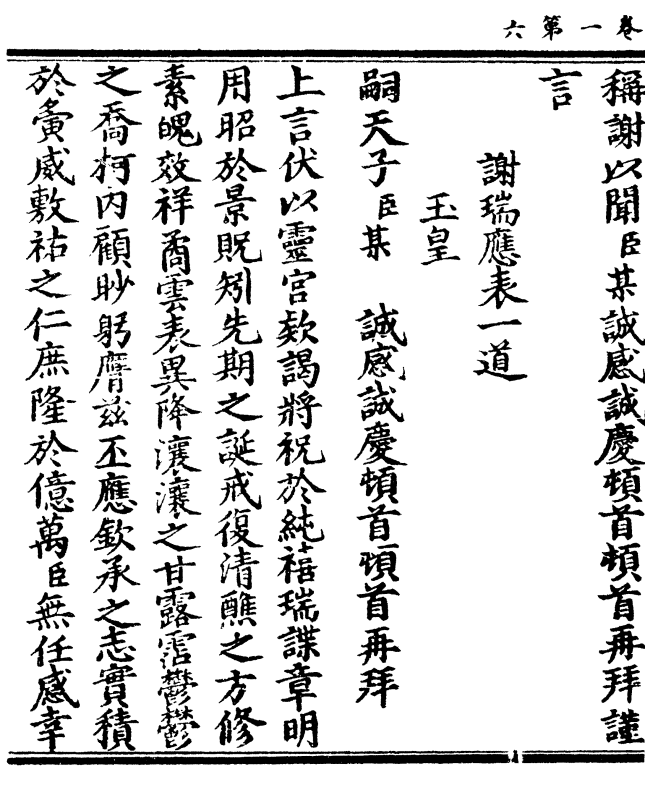 卷一第六
稱謝以聞臣某誠感誠慶頓首頓首再拜謹
言
謝瑞應表一道
玉皇
嗣天子臣某誠感誠慶頓首頓首再拜
上言伏以靈宮欵謁將祝於純禧瑞諜章明
用昭於景貺矧先期之誕戒復清醮之方修
素魄效祥矞雲表異降瀼瀼之甘露霑鬱鬱
之喬柯內顧眇躬膺茲丕應欽承之志實積
於夤威敷祐之仁庶隆於億萬臣無任感幸